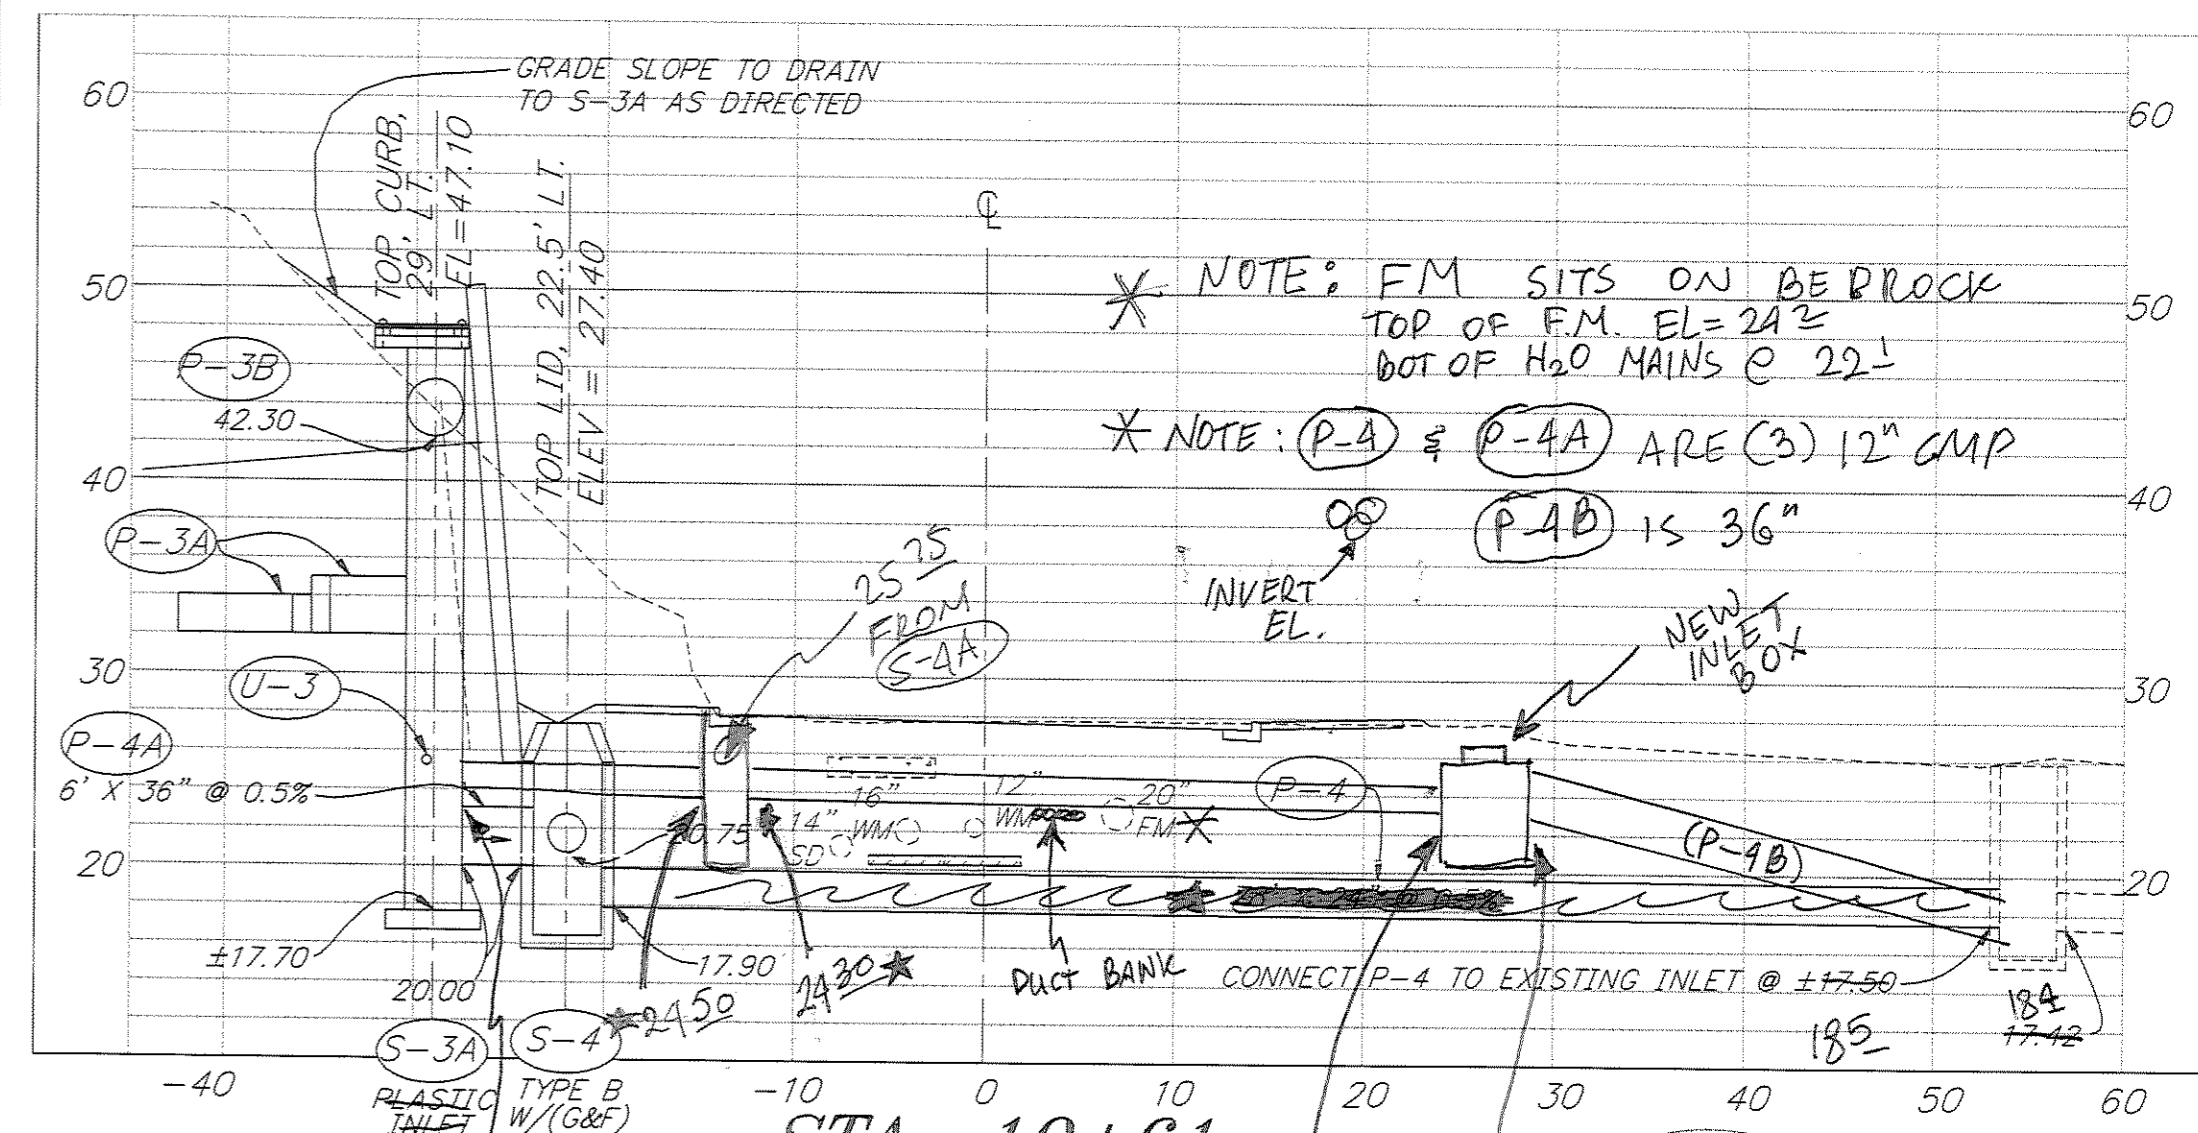 GRADE SLOPE TO DRAIN
TO S-3A AS DIRECTED
60
60
TOP CURB,
29' LT.
EL=47.10
TOP LID, 22.5' LT.
ELEV = 27.40
℄
50
50
* NOTE: FM SITS ON BEDROCK
TOP OF F.M. EL=24²
BOT OF H2O MAINS @ 22¹
P-3B
42.30
* NOTE: P-4 & P-4A ARE (3) 12" CMP
P-4B IS 36"
40
40
P-3A
INVERT
EL.
25 25
FROM
S-4A
NEW
INLET
BOX
30
30
U-3
P-4A
6' X 36" @ 0.5%
20.75
14"
SD
16"
WM
12"
WM
20"
FM *
P-4
(P-4B)
20
20
±17.70
20.00
17.90
24 50
24 30
DUCT BANK
CONNECT P-4 TO EXISTING INLET @ ±17.50
185
184
17.42
S-3A
PLASTIC
INLET
S-4
TYPE B
W/(G&F)
-40
-10
0
10
20
30
40
50
60